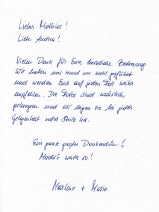 Lieber Matthias!
Liebe Andrea!
Vielen Dank für Eure herzliche Betreuung.
Wir haben uns rund um wohl gefühlt
und werden Euch auf jeden Fall weiter
empfehlen. Die Fotos sind wirklich
gelungen und wir sagen sie bei jeder
Gelegenheit voller Stolz her.
Ein ganz großes Dankeschön!
Macht's weiter so!
Marlene + Mario